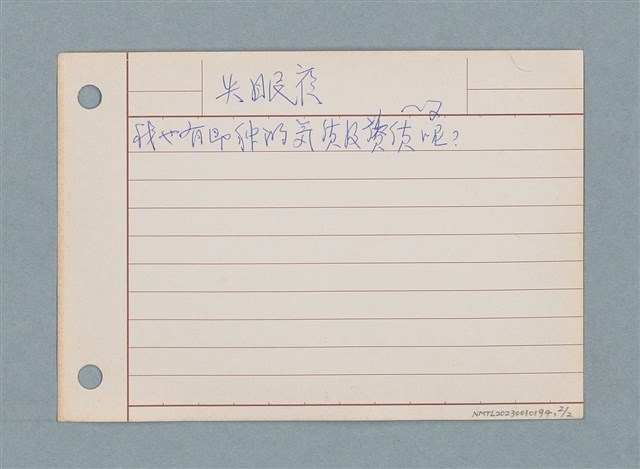 失眠夜
我也有即种的気质及呢？
NMTL20230010194. 2/2